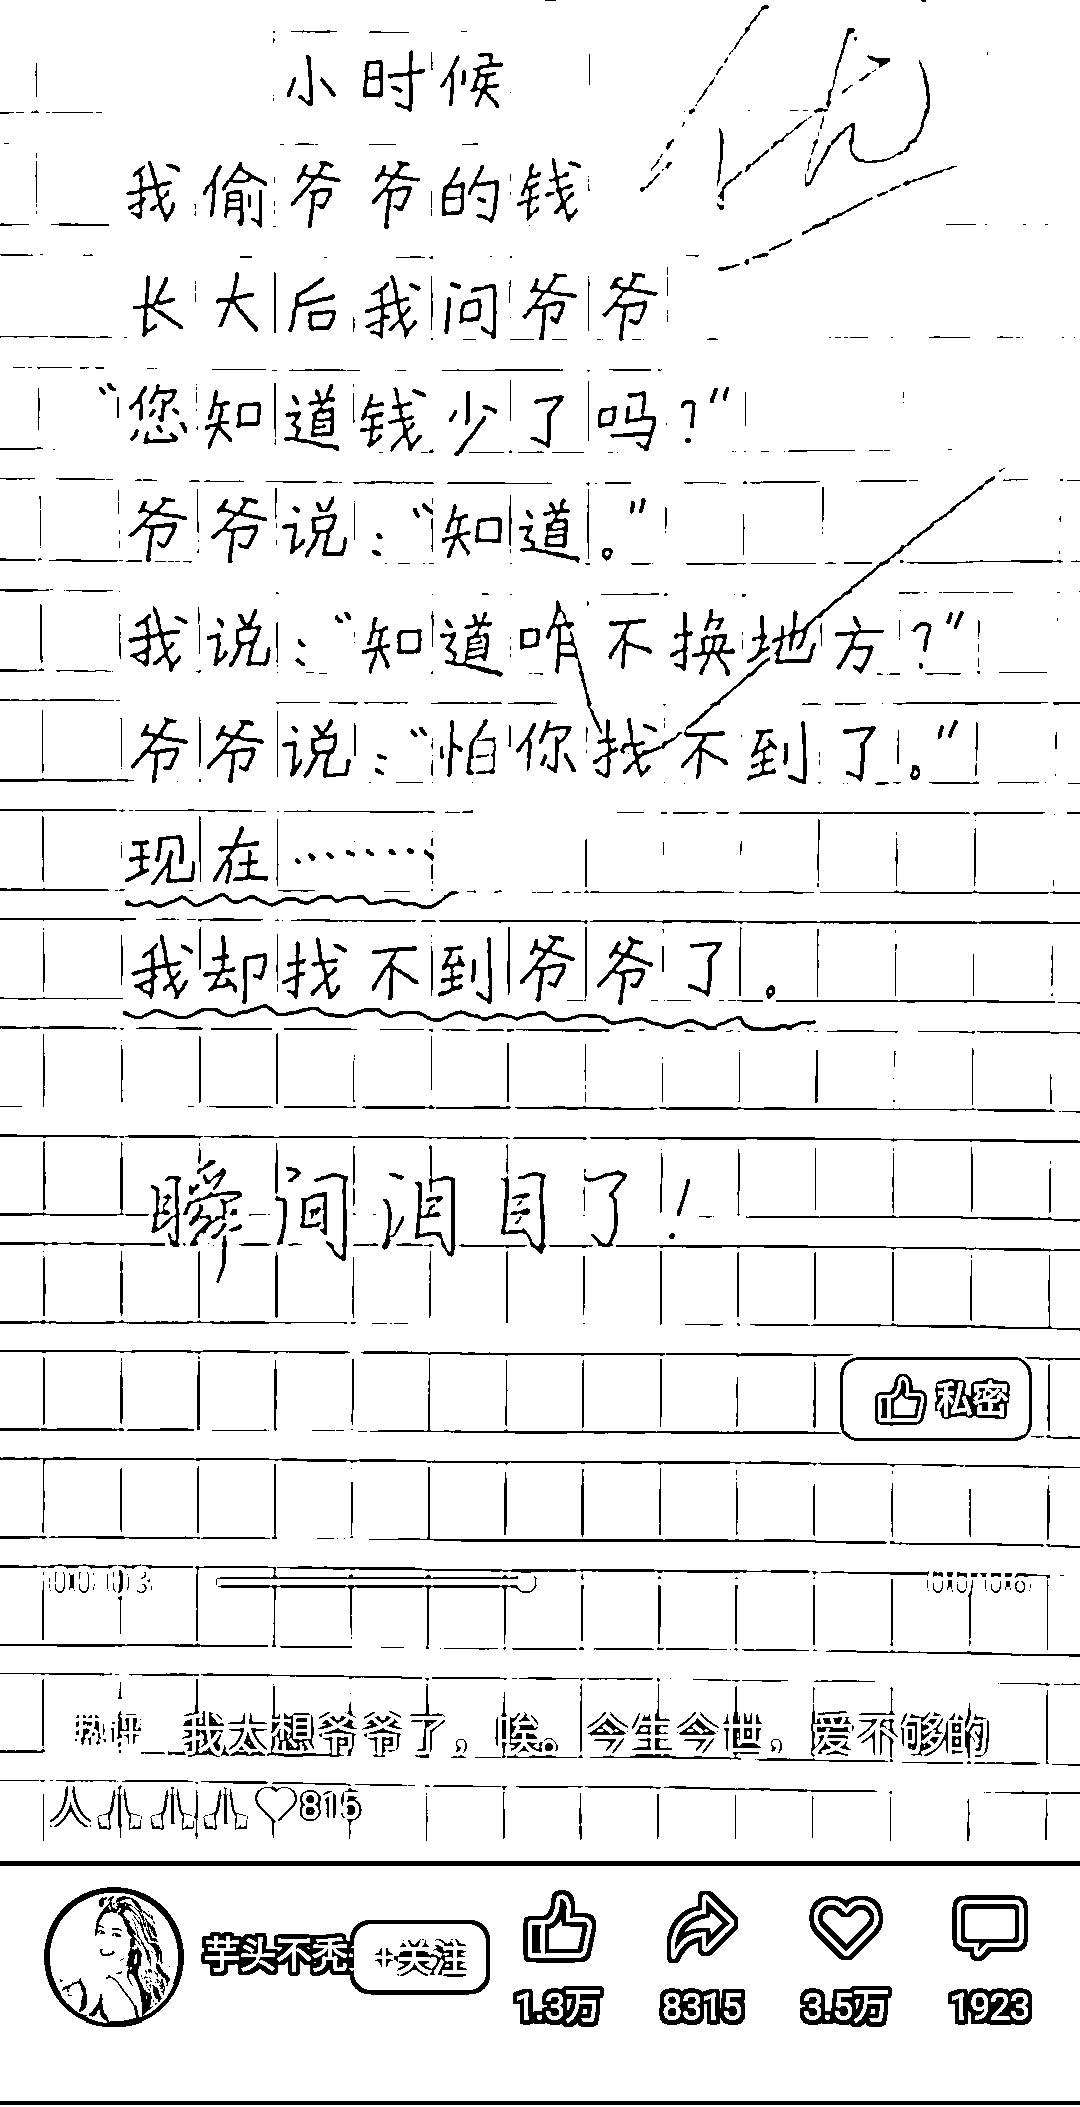 小时候
优
我偷爷爷的钱
长大后我问爷爷
“您知道钱少了吗?”
爷爷说:“知道。”
我说:“知道咋不换地方?”
爷爷说:“怕你找不到了。”
现在········
我却找不到爷爷了。
瞬间泪目了!
私密
00:03
00:06
热评 我太想爷爷了,唉。今生今世,爱不够的
人🙏🙏🙏♡815
芋头不秃
+关注
1.3万
8315
3.5万
1923